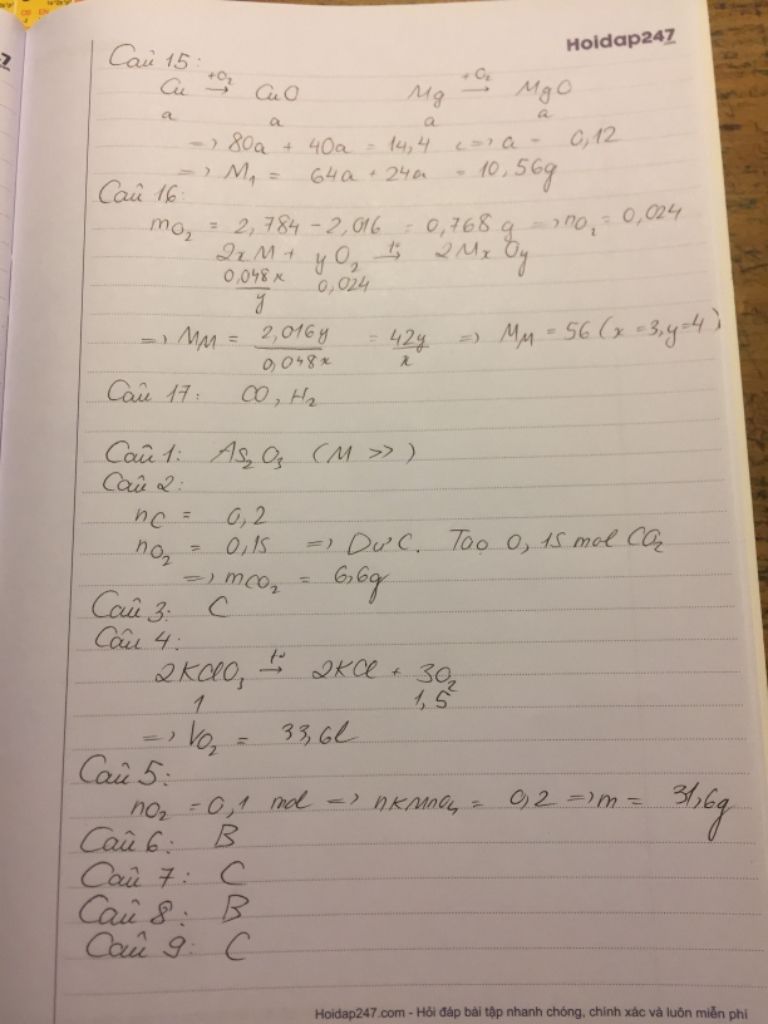 Hoidap247
Câu 15:
Cu +O₂ → CuO Mg +O₂ → MgO
a a a a
=> 80a + 40a = 14,4 <=> a = 0,12
=> M₁ = 64a + 24a = 10,56g
Câu 16:
mO₂ = 2,784 - 2,016 = 0,768 g => nO₂ = 0,024
2xM + yO₂ t° → 2MxOy
0,048x/y 0,024
=> MM = 2,016y/0,048x = 42y/x => MM = 56 (x=3,y=4)
Câu 17: CO, H₂
Câu 1: As₂O₃ (M >>)
Câu 2:
nC = 0,2
nO₂ = 0,15 => Dư C. Tạo 0,15 mol CO₂
=> mCO₂ = 6,6g
Câu 3: C
Câu 4:
2KClO₃ t° → 2KCl + 3O₂
1 1,5
=> VO₂ = 33,6l
Câu 5:
nO₂ = 0,1 mol => nKMnO₄ = 0,2 => m = 31,6g
Câu 6: B
Câu 7: C
Câu 8: B
Câu 9: C
Hoidap247.com - Hỏi đáp bài tập nhanh chóng, chính xác và luôn miễn phí